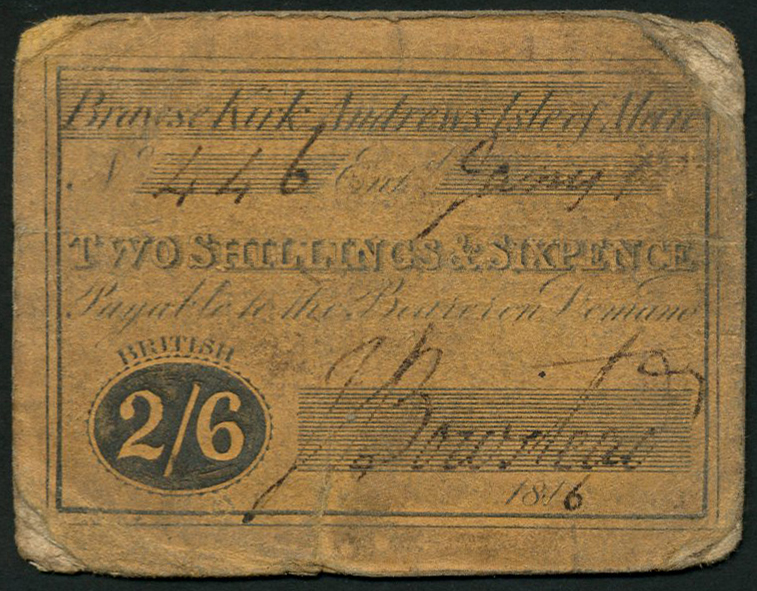 Braose Kirk Andrews Isle of Man
No. 446 Entd. Jany 1st
TWO SHILLINGS & SIXPENCE
Payable to the Bearer on Demand
BRITISH
2/6
J. Bowstead
1816